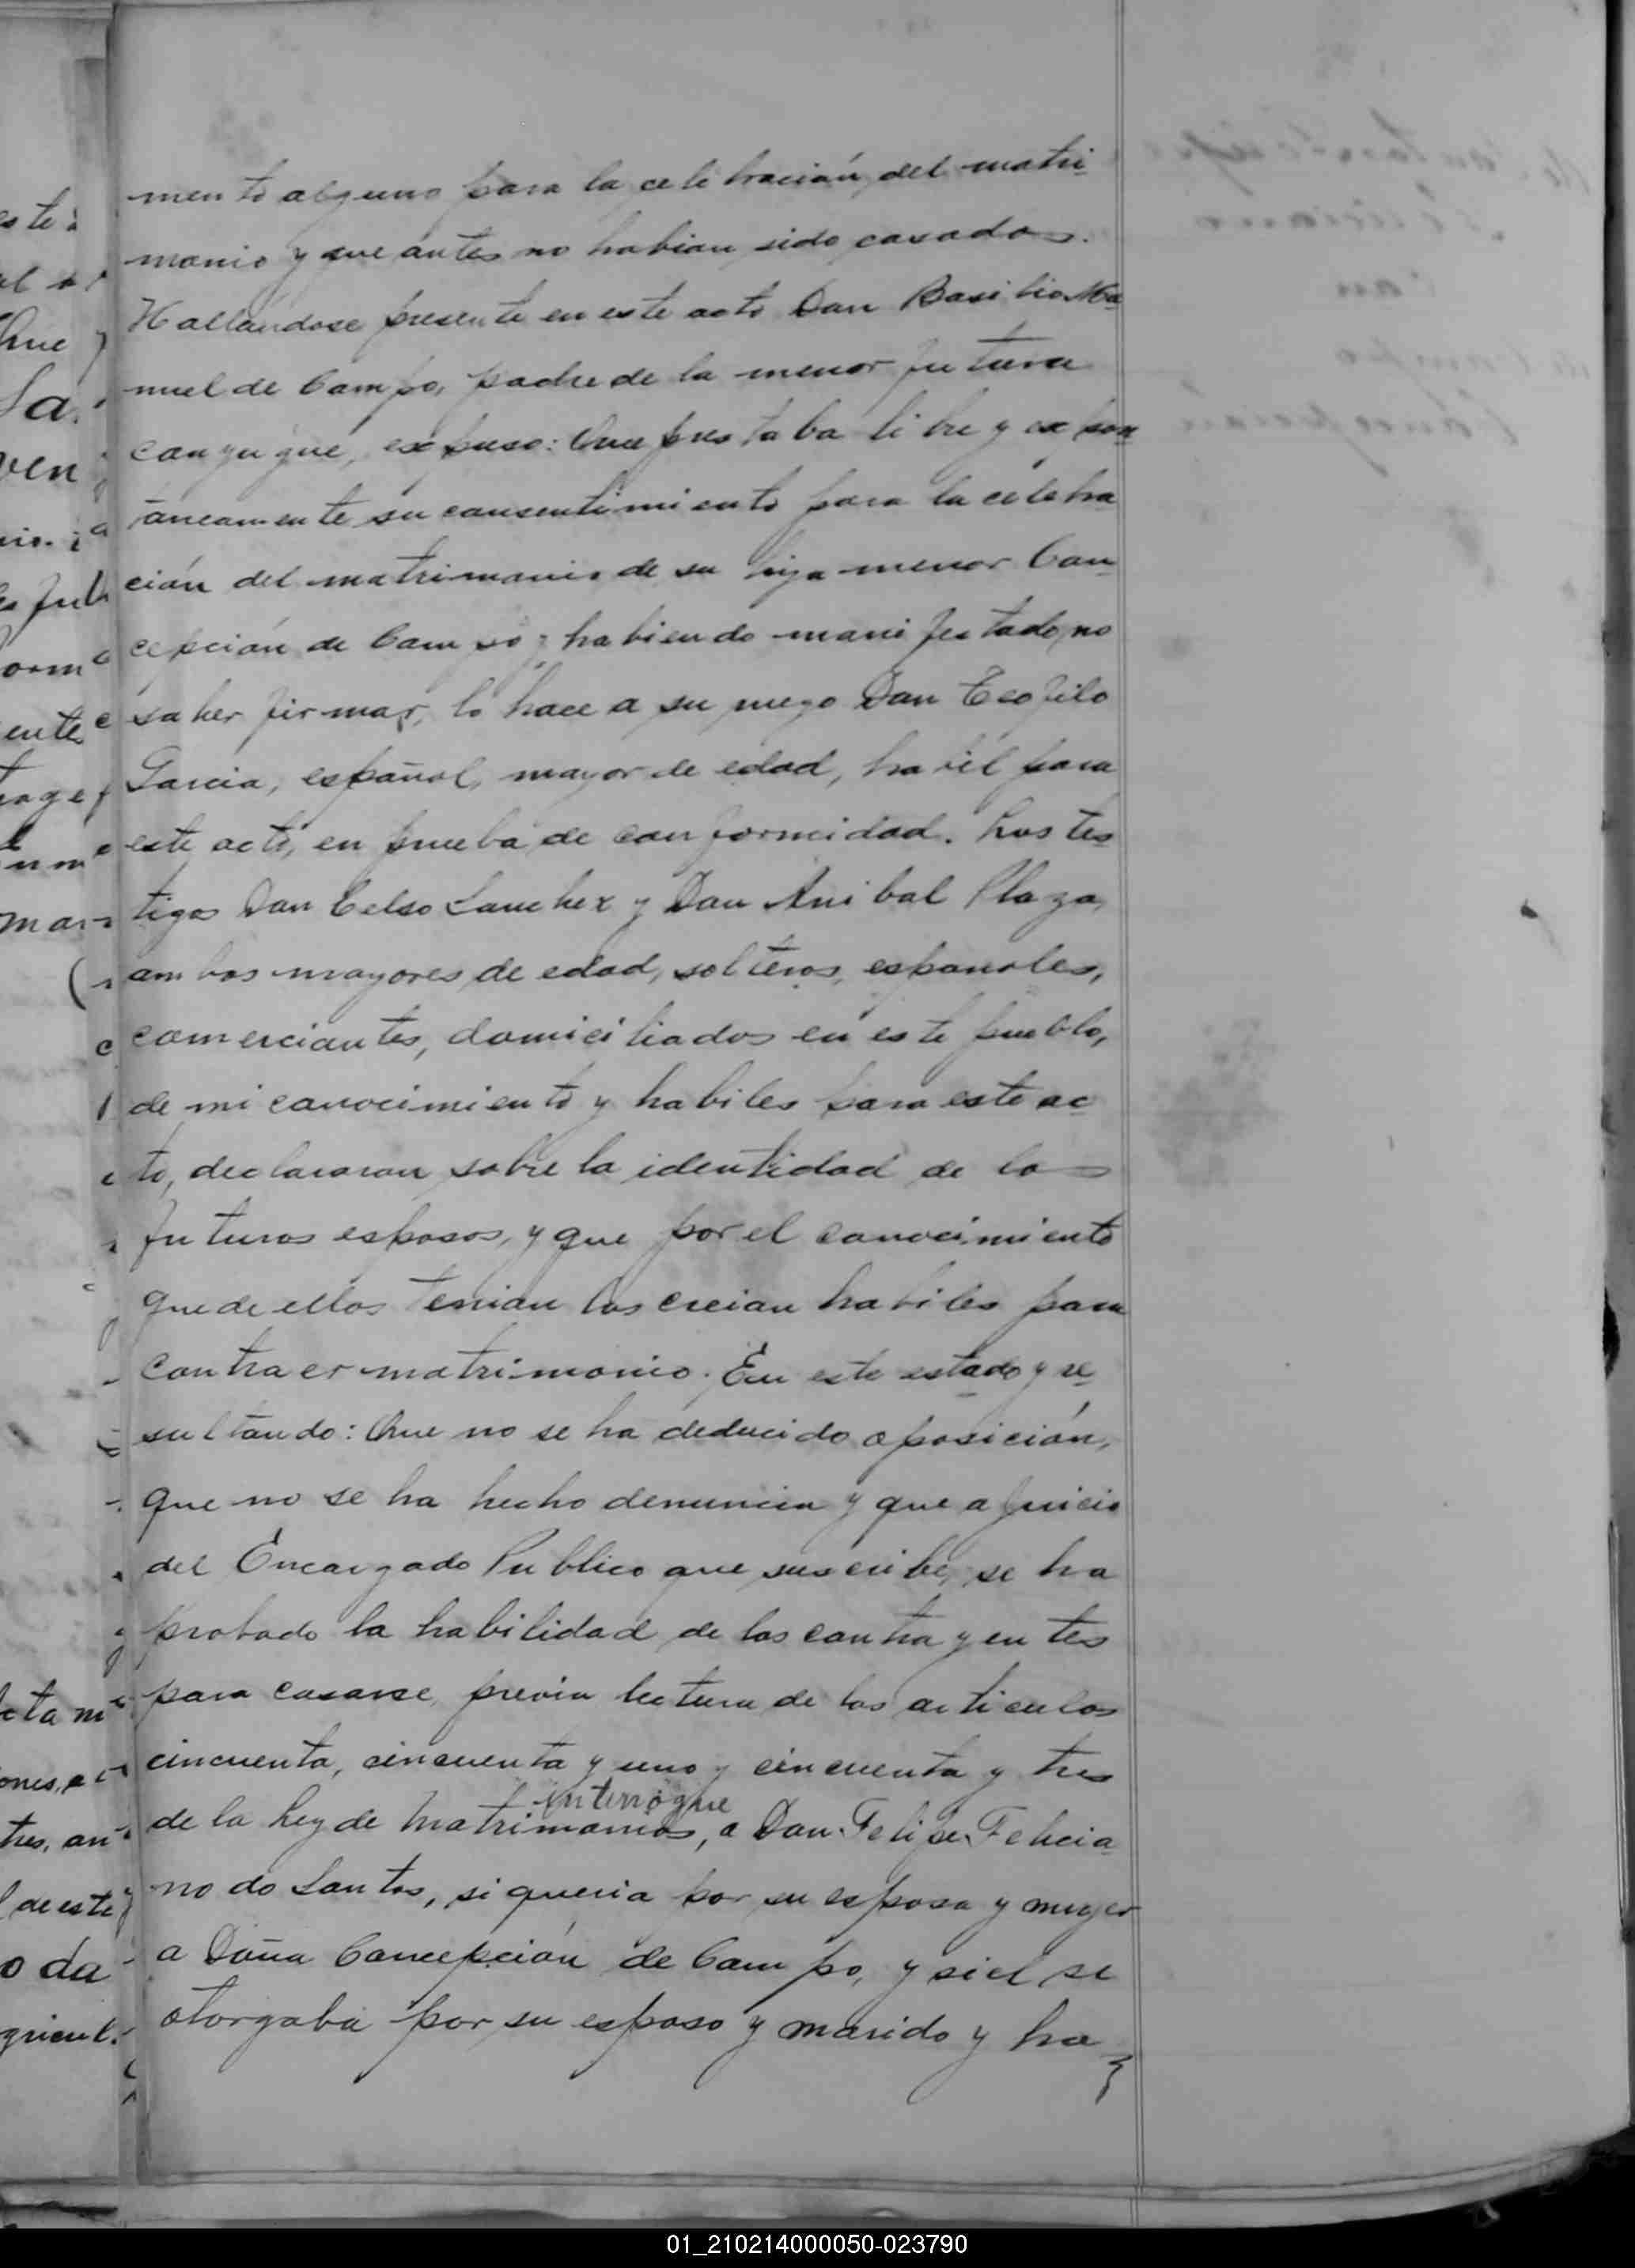 mento alguno para la celebración del matri
monio y que antes no habian sido casados.
Hallandose presente en este acto Don Basilio Ma
nuel de Campo, padre de la menor futura
conyugue, expuso: Que prestaba libre y expon
táneamente su consentimiento para la celebra
ción del matrimonio de su hija menor Con
cepción de Campo y habiendo manifestado no
saber firmar, lo hace a su ruego Don Teofilo
Garcia, español, mayor de edad, habil para
este acto, en prueba de conformidad. Los tes
tigos Don Celso Sanchez y Don Anibal Plaza,
ambos mayores de edad, solteros, españoles,
comerciantes, domiciliados en este pueblo,
de mi conocimiento y habiles para este ac
to, declararon sobre la identidad de los
futuros esposos, y que por el conocimiento
que de ellos tenian los creian habiles para
contraer matrimonio. En este estado y re
sultando: Que no se ha deducido oposición,
que no se ha hecho denuncia y que a juicio
del Encargado Publico que suscribe, se ha
probado la habilidad de los contrayentes
para casarse, previa lectura de los articulos
cincuenta, cincuenta y uno y cincuenta y tres
interrogue
de la Ley de Matrimonios, a Don Felipe Felicia
no do Santos, si queria por su esposa y mujer
a Doña Concepción de Campo, y si el se
otorgaba por su esposo y marido y ha
01_210214000050-023790